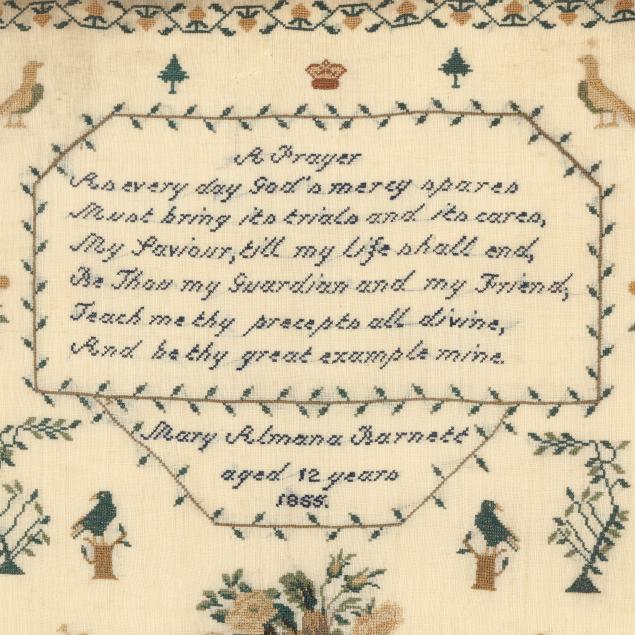 A Prayer
As every day God's mercy spares
Must bring its trials and its cares,
My Saviour, till my life shall end,
Be Thou my Guardian and my Friend,
Teach me thy precepts all divine,
And be thy great example mine.
Mary Almana Barnett
aged 12 years
1855.